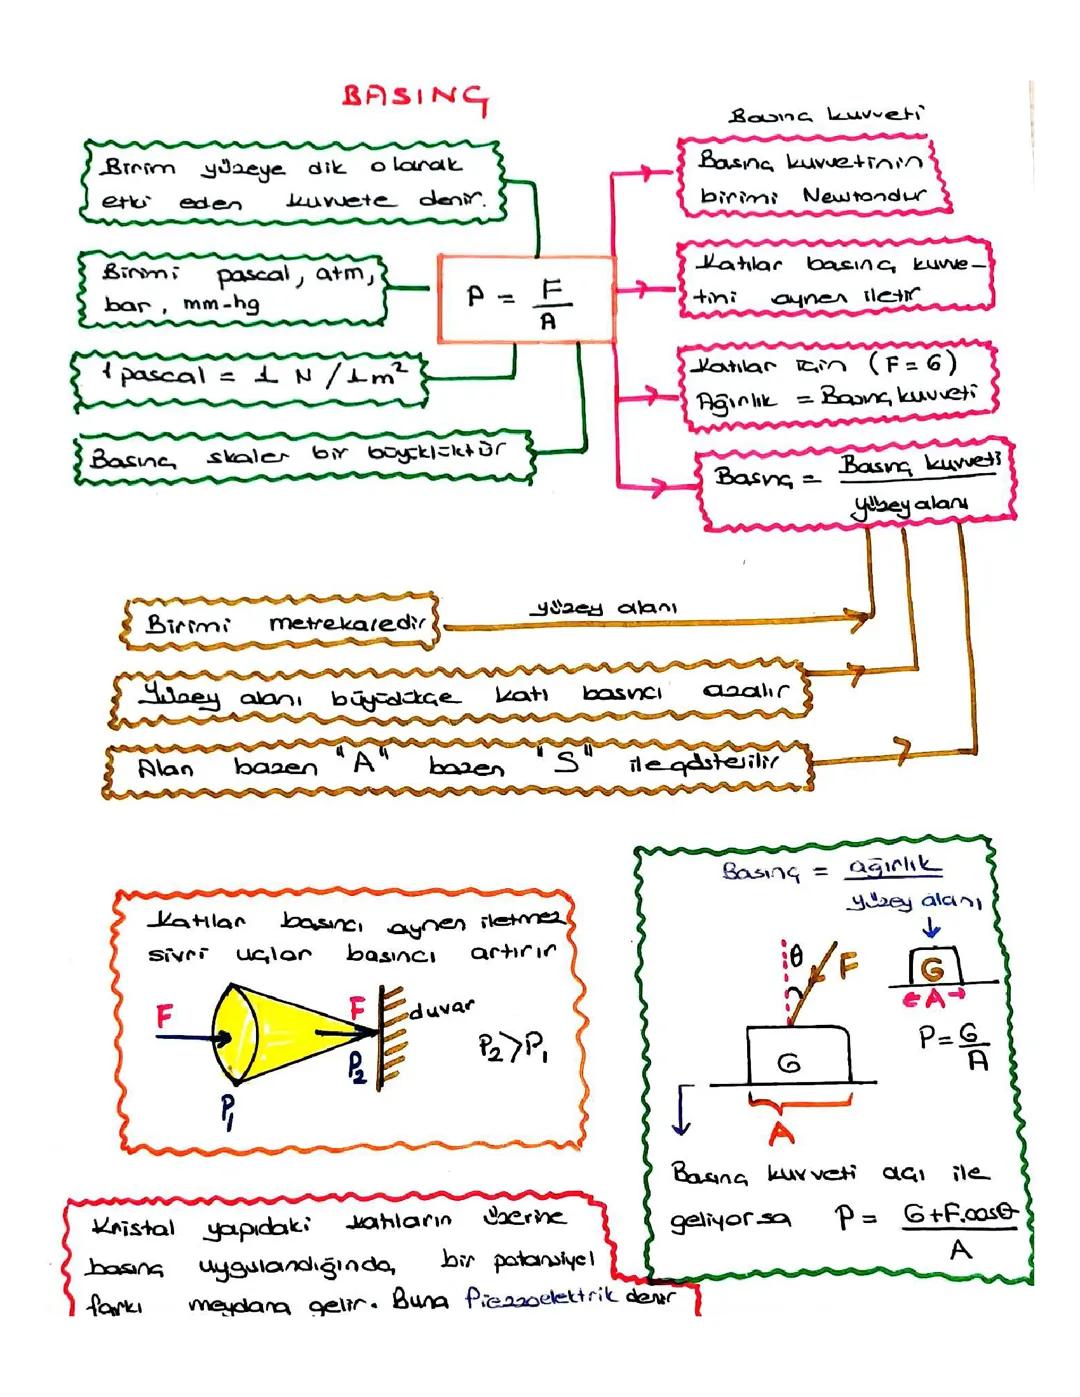 BASINÇ
Birim yüzeye dik olarak
etki eden kuvvete denir.
Birimi pascal, atm,
bar, mm-hg
1 pascal = 1 N / 1 m²
Basınç skaler bir büyüklüktür
P = F
A
Basınç kuvveti
Basınç kuvvetinin
birimi Newtondur
Katılar basınç kuvve-
tini aynen iletir
Katılar için (F = G)
Ağırlık = Basınç kuvveti
Basınç = Basınç kuvveti
yüzey alanı
yüzey alanı
Birimi metrekaredir
Yüzey alanı büyüdükçe katı basıncı azalır
Alan bazen "A" bazen "S" ile gösterilir
Katılar basıncı aynen iletmez
sivri uçlar basıncı artırır
F
F
duvar
P₂ > P₁
P₂
P₁
Basınç = ağırlık
yüzey alanı
θ
F
G
A
P = G
A
G
A
Basınç kuvveti açı ile
geliyorsa P = G+F.cosθ
A
Kristal yapıdaki katıların üzerine
basınç uygulandığında, bir potansiyel
farkı meydana gelir. Buna Piezzoelektrik denir